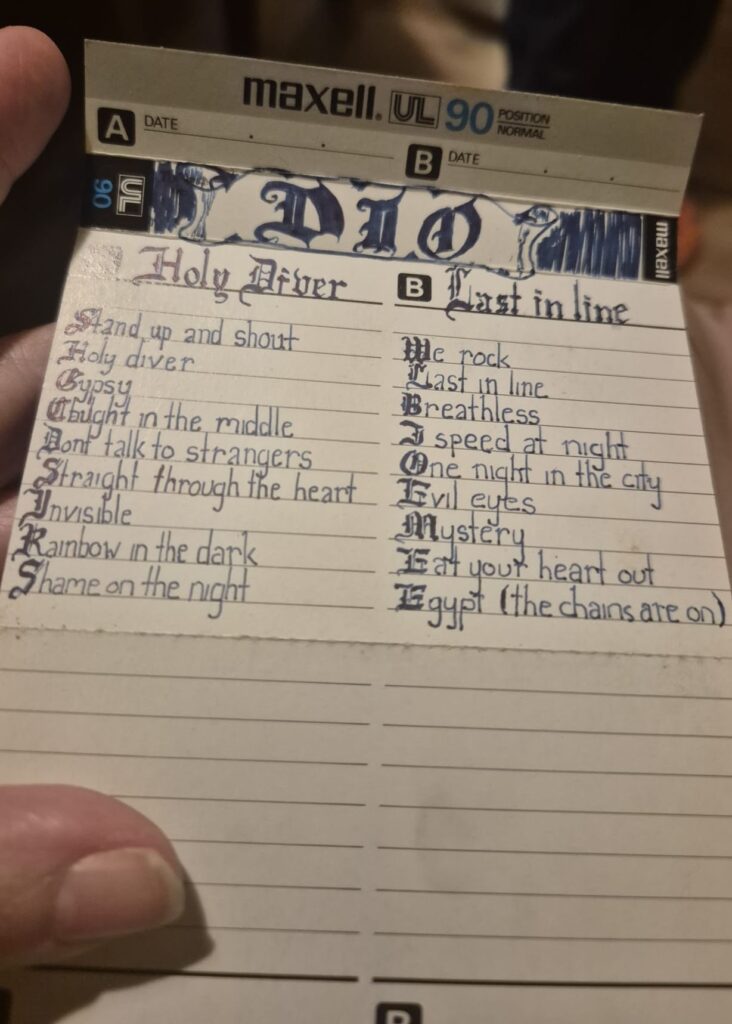 maxell. UL 90 POSITION NORMAL
A DATE
B DATE
UL 90
DIO
maxell
Holy Diver
Stand up and shout
Holy diver
Gypsy
Caught in the middle
Dont talk to strangers
Straight through the heart
Invisible
Rainbow in the dark
Shame on the night
B Last in line
We rock
Last in line
Breathless
I speed at night
One night in the city
Evil eyes
Mystery
Eat your heart out
Egypt (the chains are on)
B